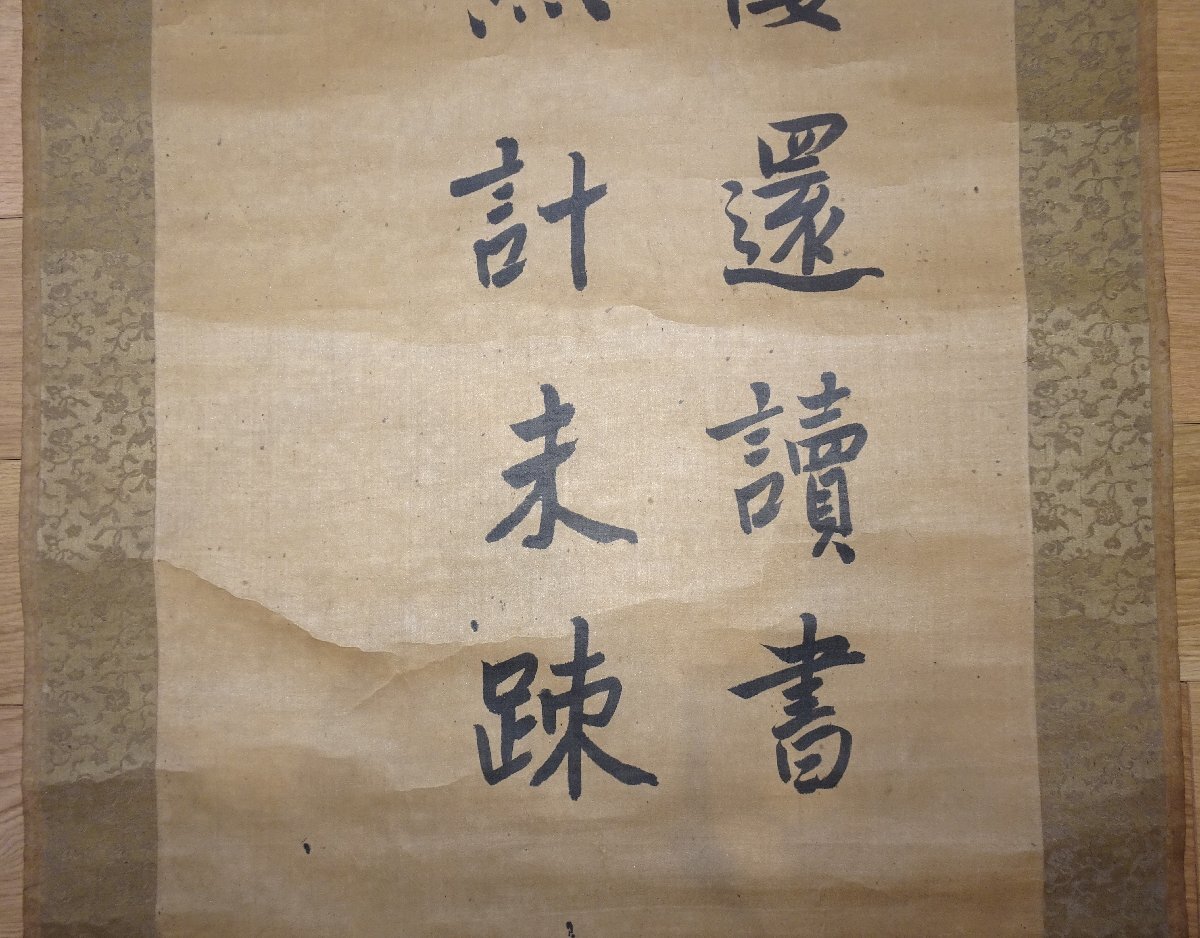 還讀書
計未疎